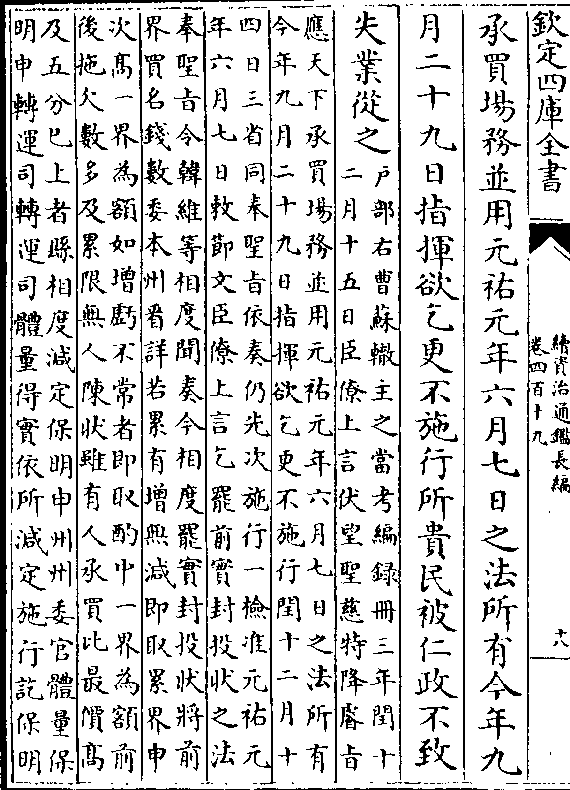 欽定四庫全書
續資治通鑑長編
卷四百十九
十八
承買場務並用元祐元年六月七日之法所有今年九
月二十九日指揮欲乞更不施行所貴民被仁政不致
失業從之
戸部右曹蘇轍主之當考編録冊三年閏十
二月十五日臣僚上言伏望聖慈特降睿旨
應天下承買場務並用元祐元年六月七日之法所有
今年九月二十九日指揮欲乞更不施行閏十二月十
四日三省同奉聖旨依奏仍先次施行一檢准元祐元
年六月七日敕節文臣僚上言乞罷前實封投狀之法
奉聖旨令韓維等相度聞奏今相度罷實封投狀將前
界買名錢數委本州看詳若累有增無減即取累界中
次髙一界為額如增虧不常者即取酌中一界為額前
後拖欠數多及累限無人陳狀雖有人承買比最價髙
及五分已上者縣相度減定保明申州州委官體量保
明申轉運司轉運司體量得實依所減定施行訖保明